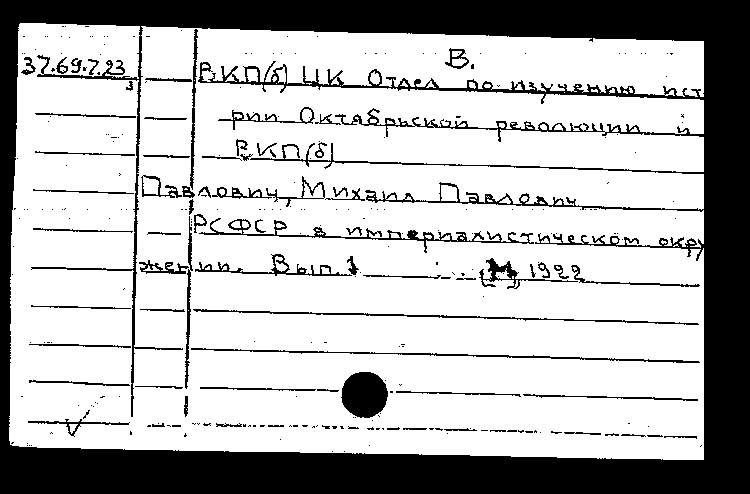 В.
37.69.7.23 ВКП(б) ЦК Отдел по изучению ист
3
рии Октябрьской революции и
ВКП(б)
Павлович, Михаил Павлович
РСФСР в империалистическом окру
жении. Вып. 1 [М] 1922